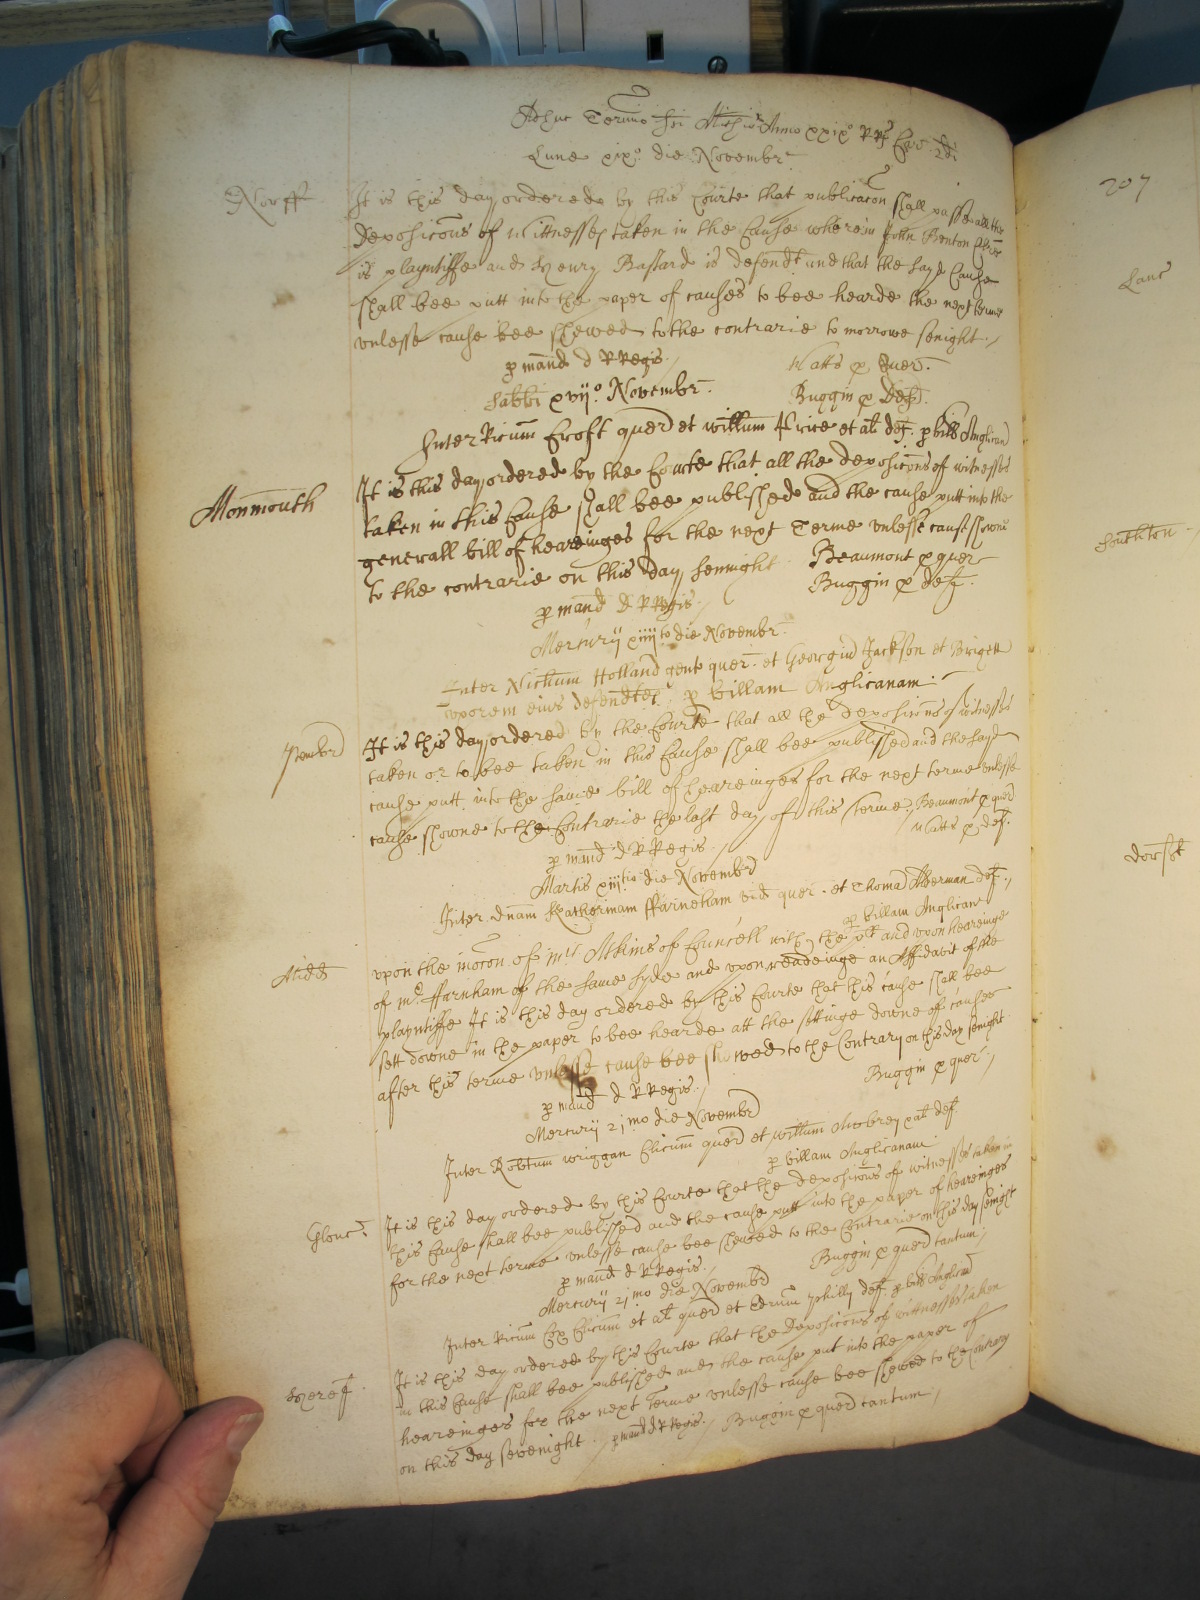 Adhuc Termino Sci Mich Anno xxixo RRs Car 2di
Lune xixo die Novembr
Norff
It is this day ordered by this Courte that publicacon shall passe all the
deposicons of wittnesses taken in the Cause wherein John Benton Clre
is playntiffe and Henry Bastard is defendt and that the sayd Cause
shall bee putt into the paper of causes to bee hearde the next terme
vnlesse cause bee shewed to the contrarie to morrowe senight
p mand d R Regis
Watts p Quer
Sabbi xvijo Novembr
Buggin p Def
Inter Ricum Croft quer et willum Price et al def p bill Anglican
Monmouth
It is this day ordered by the Courte that all the deposicons of witnesses
taken in this Cause shall bee published and the cause putt into the
generall bill of heareinges for the next Terme vnlesse cause shewne
to the contrarie on this day sennight
Beaumont p quer
Buggin p def
p mand d R Regis
Mercurij xiiijto die Novembr
Inter Nichum Holland gent quer et Georgiu Jackson et Brigett
vxorem eius defendtes p billam Anglicanam
Pembr
It is this day ordered by the Courte that all the deposicions of witnesses
taken or to bee taken in this Cause shall bee published and the sayd
cause putt into the same bill of heareinges for the next terme vnlesse
cause showne to the Contrarie the last day of this terme Beaumont p quer
Watts p def
p mand d R Regis
Martis xiijtio die Novembr
Inter dnam Katherinam ffarneham vid quer et Thoma Alderman def
p billam Anglicana
Midd
vpon the mocon of mr Atkins of Councell with the plt and vpon heareinge
of mr ffarnham of the same syde and vpon readeinge an Affidavit of the
playntiffe It is this day ordered by this Courte that this cause shall bee
sett downe in the paper to bee hearde att the settinge downe of causes
after this terme vnlesse cause bee shewed to the Contrary on this day senight
Buggin p quer
p mand d R Regis
Mercurij 21mo die Novembr
Inter Robtum wriggan Clicum quer et willum Mobrey et al def
p billam Anglicanam
Glouc
It is this day ordered by this Courte that the deposicons of witnesses taken in
this Cause shall bee published and the cause putt into the paper of heareinges
for the next terme vnlesse cause bee shewed to the Contrarie on this day senight
Buggin p quer tantum
p mand d R Regis
Mercurij 21mo die Novembr
Inter Ricum Clicum et al quer et Edrum Phillip def p bill Anglican
Heref
It is this day ordered by this Courte that the deposicons of wittnesses taken
in this Cause shall bee published and the cause put into the paper of
heareinges for the next Terme vnlesse cause bee shewed to the Contrary
on this day sevenight p mand d R Regis Buggin p quer tantum
207
Lanc
Southton
Dorset